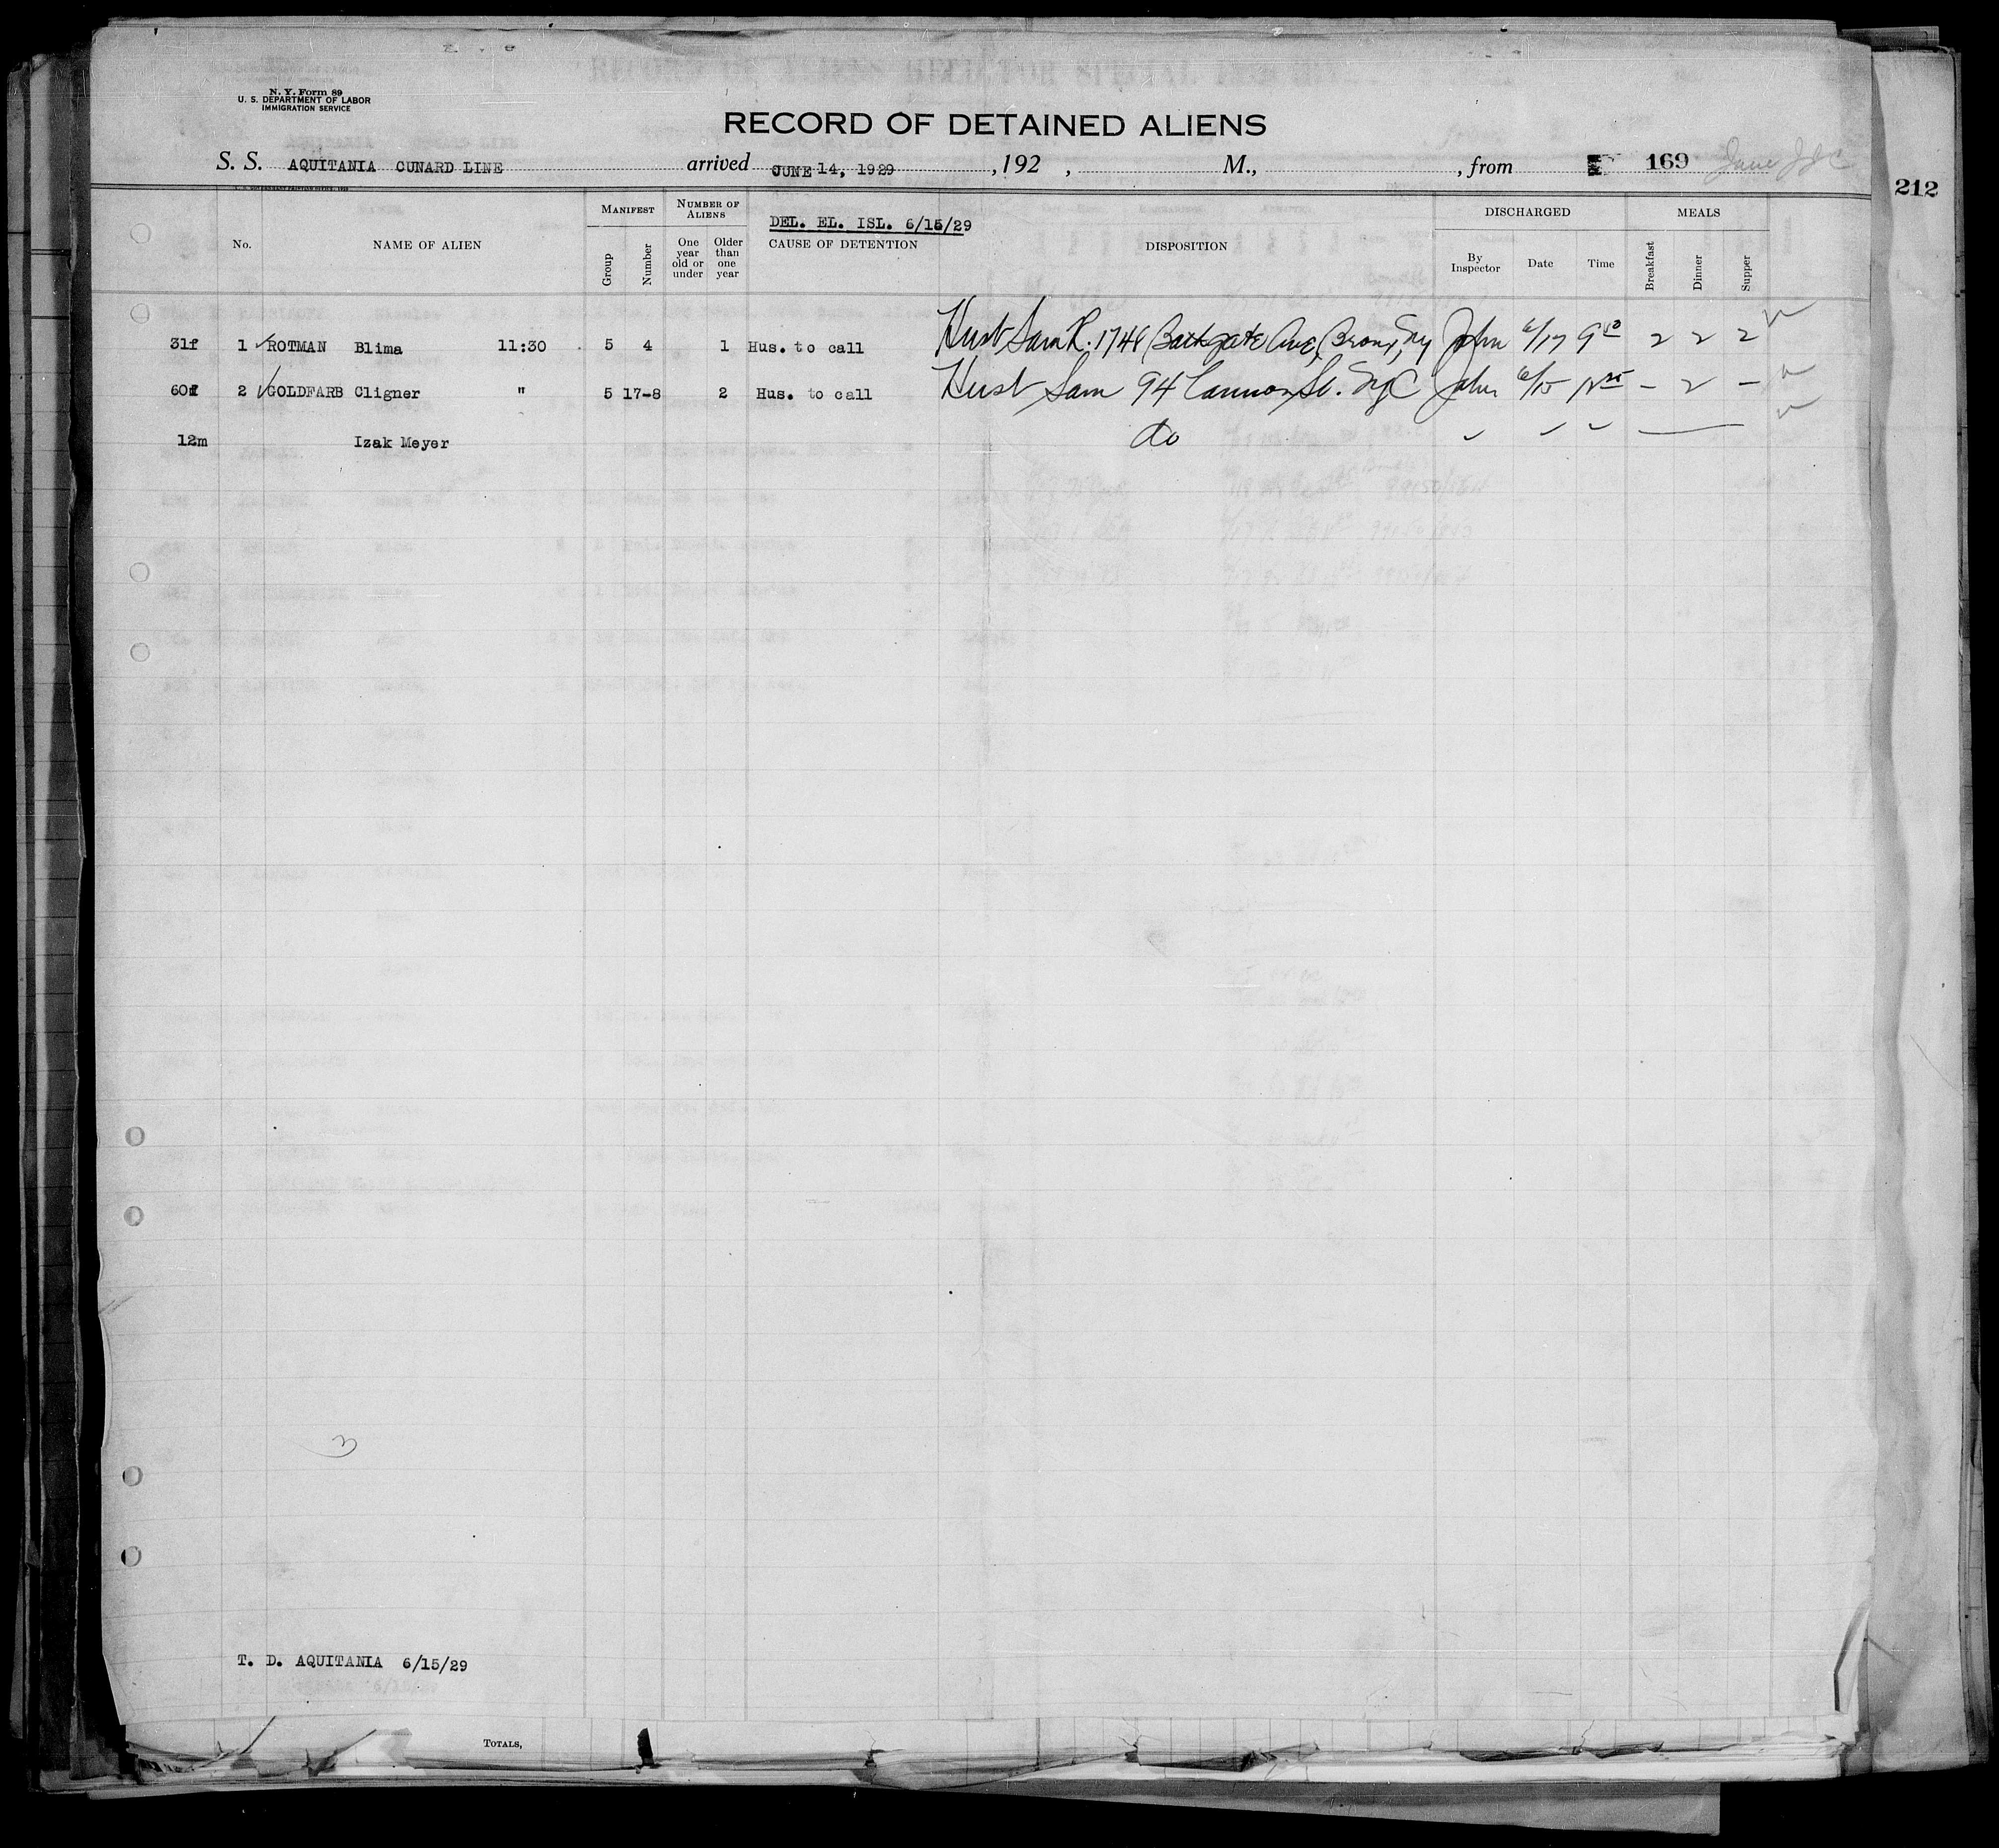 N. Y. Form 89
U. S. DEPARTMENT OF LABOR
IMMIGRATION SERVICE
RECORD OF DETAINED ALIENS
S. S. AQUITANIA CUNARD LINE arrived JUNE 14, 1929 , 192 , M., , from 169
212
MANIFEST NUMBER OF ALIENS DEL. EL. ISL. 6/15/29 DISCHARGED MEALS
No. NAME OF ALIEN Group Number One year old or under Older than one year CAUSE OF DETENTION DISPOSITION By Inspector Date Time Breakfast Dinner Supper
31f 1 ROTMAN Blima 11:30 5 4 1 Hus. to call Husb Sam R. 1748 Bathgate Ave, Bronx, Ny John 6/17 9 10 2 2 2
60f 2 GOLDFARB Cligner " 5 17-8 2 Hus. to call Husb Sam 94 Cannon St. NyC John 6/15 - 2 -
12m Izak Meyer do
3
T. D. AQUITANIA 6/15/29
TOTALS,